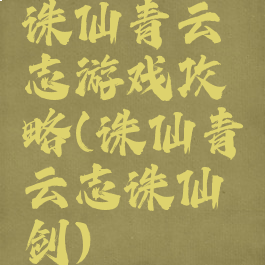 诛仙青云
志游戏攻
略(诛仙青
云志诛仙
剑)